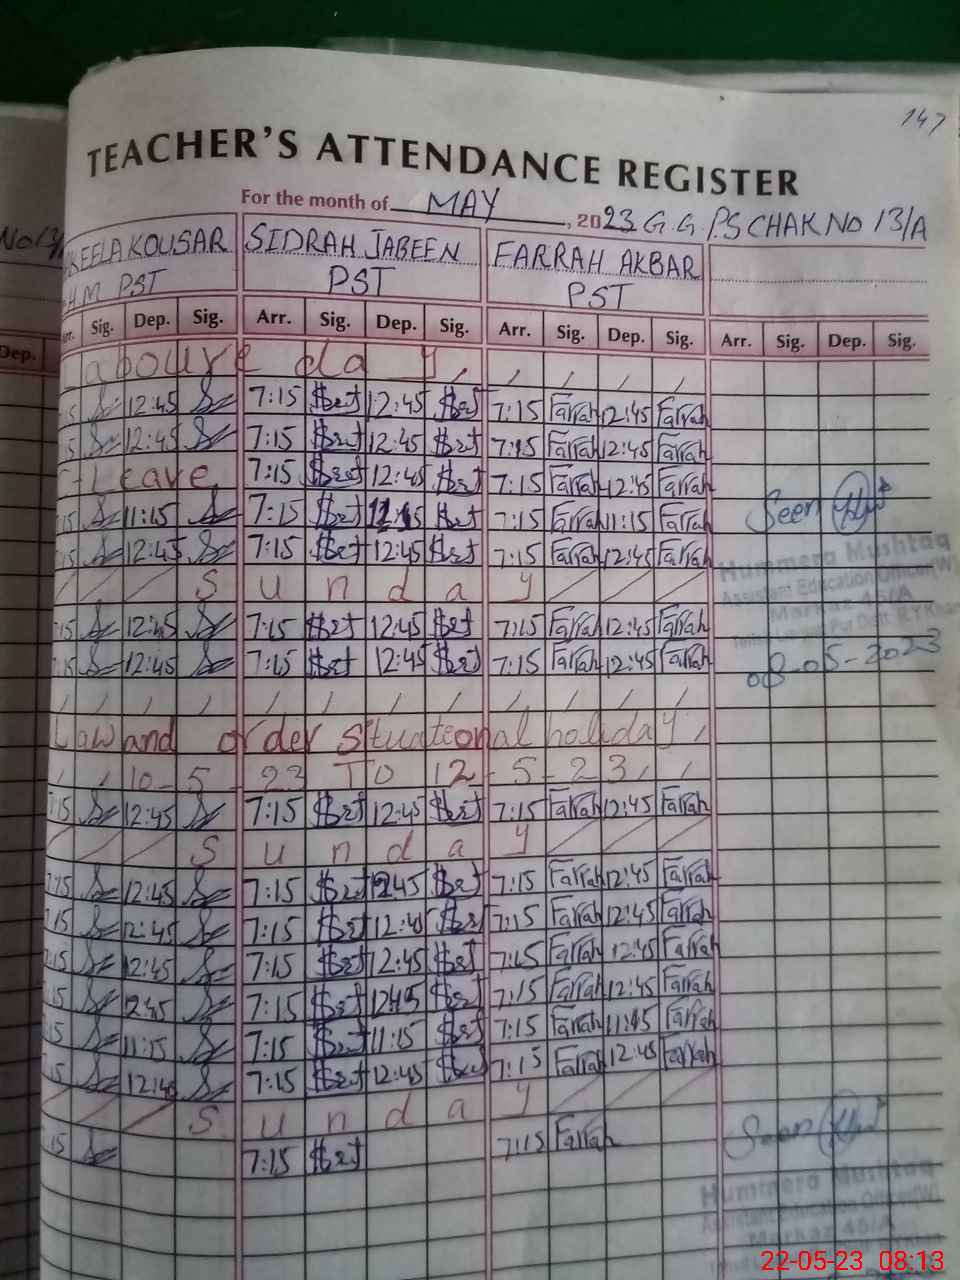 147
TEACHER'S ATTENDANCE REGISTER
For the month of MAY, 2023 G.G.P.S CHAK No 13/A
No 13/
KEELA KOUSAR SIDRAH JABEEN FARRAH AKBAR
H.M PST PST PST
Dep. Arr. Sig. Dep. Sig. Arr. Sig. Dep. Sig. Arr. Sig. Dep. Sig. Arr. Sig. Dep. Sig.
Laboure day,
12:45 7:15 12:45 7:15 Farrah 12:45 Farrah
12:45 7:15 12:45 7:15 Farrah 12:45 Farrah
Leave 7:15 12:45 7:15 Farrah 12:45 Farrah
11:15 7:15 7:15 Farrah 11:15 Farrah Seen
12:45 7:15 12:45 7:15 Farrah 12:45 Farrah
Hummera Mushtaq
Sunday
Assistant Education Officer(W)
12:45 7:15 12:45 7:15 Farrah 12:45 Farrah
Markaz 45/A
12:45 7:15 12:45 7:15 Farrah 12:45 Farrah
08-05-2023
Law and order situational holiday,
10-5-23 TO 12-5-23
7:15 12:45 7:15 12:45 7:15 Farrah 12:45 Farrah
Sunday
7:15 12:45 7:15 12:45 7:15 Farrah 12:45 Farrah
:15 12:45 7:15 12:45 7:15 Farrah 12:45 Farrah
:15 12:45 7:15 12:45 7:15 Farrah 12:45 Farrah
:15 12:45 7:15 12:45 7:15 Farrah 12:45 Farrah
:15 11:15 7:15 11:15 7:15 Farrah Farrah
:15 12:45 7:15 12:45 7:15 Farrah 12:45 Farrah
Sunday
:15 7:15 7:15 Farrah Seen
Hummera Mushtaq
Assistant Education Officer(W)
Markaz 45/A
22-05-23 08:13